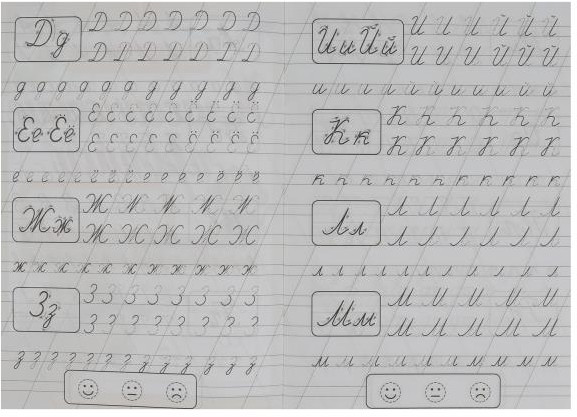 Д д
Д Д Д Д Д Д Д
Д Д Д Д Д Д Д
Е е Ё ё
Е Е Е Е Е Ё Ё Ё Ё
Е Е Е Е Е Ё Ё Ё Ё
е е е е е ё ё ё е е е ё ё ё
Ж ж
Ж Ж Ж Ж Ж
ж ж ж ж ж ж ж ж ж ж ж
З з
З З З З З З З З
З З З З З З З З
з з з з з з з з з з з з
И и Й й
И И И И Й Й Й
И И И И Й Й Й
К к
К К К К К К
К К К К К К
к к к к к к к к к к
Л л
Л Л Л Л Л Л
Л Л Л Л Л Л
л л л л л л л л л л
М м
М М М М М М
М М М М М М
м м м м м м м м м м